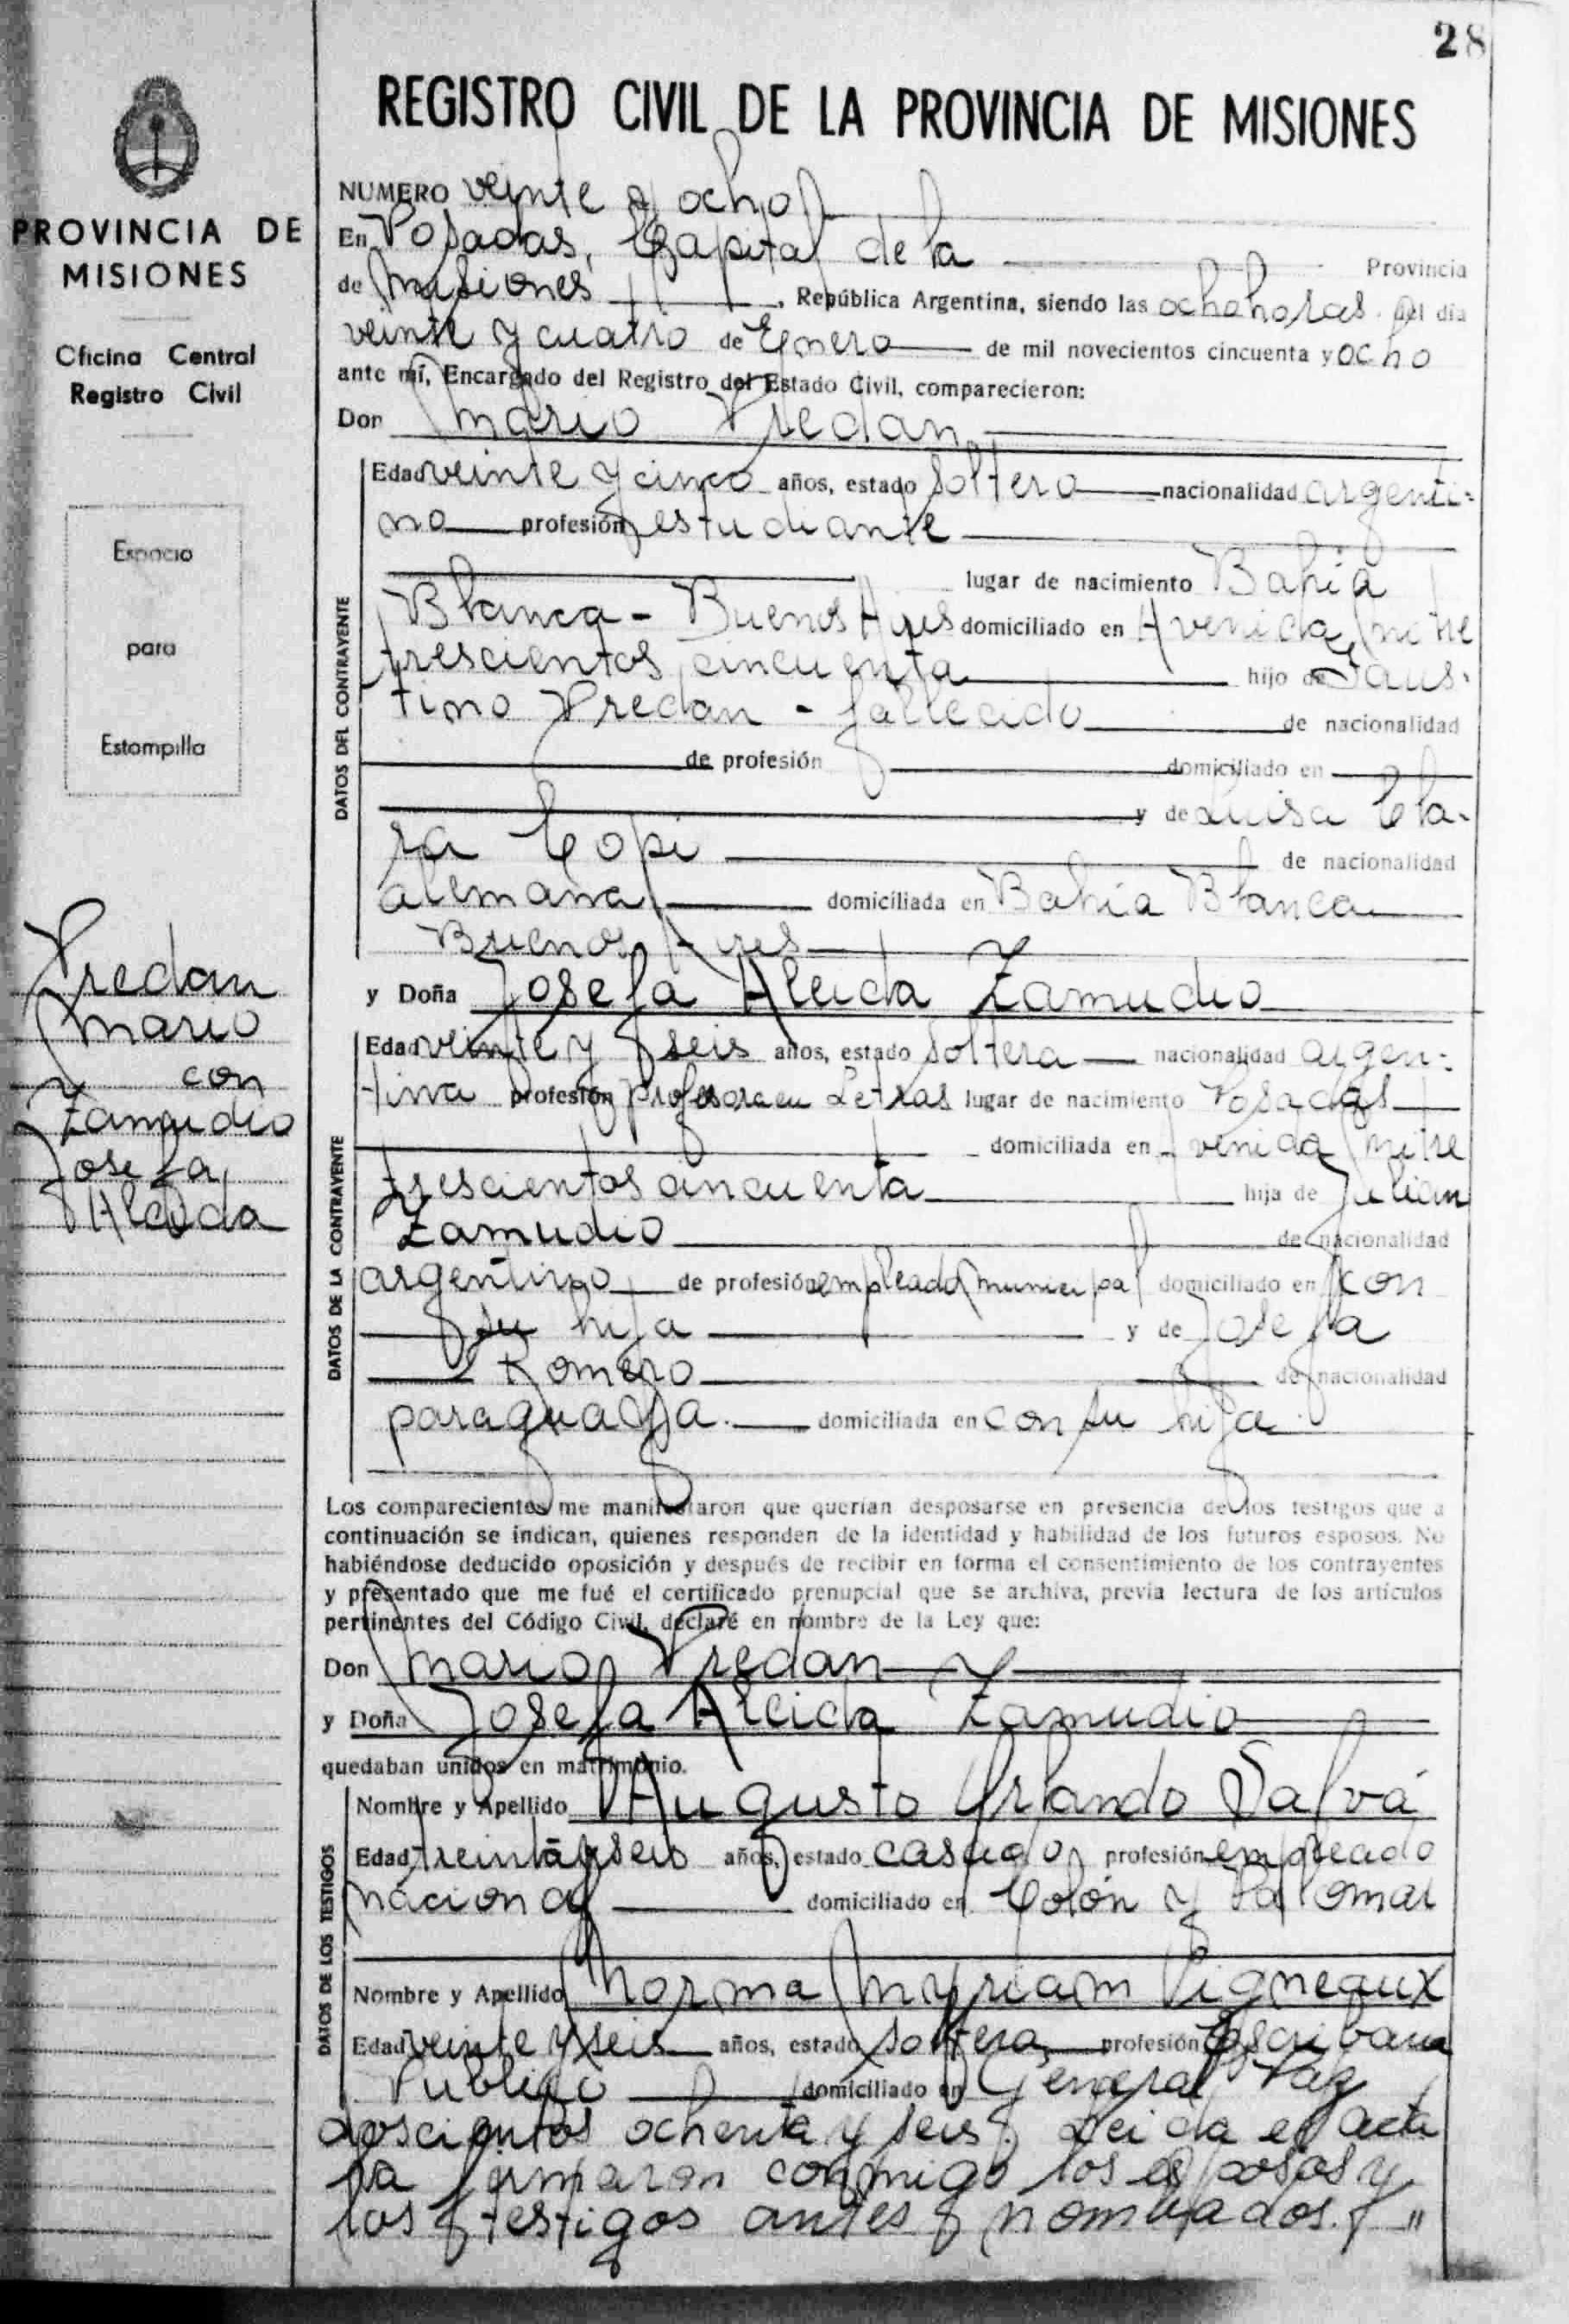 28
REGISTRO CIVIL DE LA PROVINCIA DE MISIONES
PROVINCIA DE
MISIONES
Oficina Central
Registro Civil
Espacio
para
Estampilla
Predan
Mario
con
Zamudio
Josefa
Alcida
NUMERO veinte y ocho
En Posadas, Capital de la Provincia
de Misiones, República Argentina, siendo las ocho horas del día
veinte y cuatro de Enero de mil novecientos cincuenta y ocho
ante mí, Encargado del Registro del Estado Civil, comparecieron:
Don Mario Predan
DATOS DEL CONTRAYENTE
Edad veinte y cinco años, estado soltero nacionalidad argenti-
no profesión estudiante
lugar de nacimiento Bahia
Blanca - Buenos Ayres domiciliado en Avenida Mitre
trescientos cincuenta hijo de Faus-
tino Predan - fallecido de nacionalidad
de profesión domiciliado en
y de Luisa Cla-
ra Copi de nacionalidad
alemana domiciliada en Bahia Blanca
Buenos Ayres
y Doña Josefa Alcida Zamudio
DATOS DE LA CONTRAYENTE
Edad veinte y seis años, estado soltera nacionalidad argen-
tina profesión profesora en Letras lugar de nacimiento Posadas
domiciliada en Avenida Mitre
trescientos cincuenta hija de Julian
Zamudio de nacionalidad
argentino de profesión empleado municipal domiciliado en con
su hija y de Josefa
Romero de nacionalidad
paraguaya. domiciliada en con su hija.
Los comparecientes me manifestaron que querían desposarse en presencia de los testigos que a
continuación se indican, quienes responden de la identidad y habilidad de los futuros esposos. No
habiéndose deducido oposición y después de recibir en forma el consentimiento de los contrayentes
y presentado que me fué el certificado prenupcial que se archiva, previa lectura de los artículos
pertinentes del Código Civil, declaré en nombre de la Ley que:
Don Mario Predan y
y Doña Josefa Alcida Zamudio
quedaban unidos en matrimonio.
DATOS DE LOS TESTIGOS
Nombre y Apellido Augusto Orlando Salvá
Edad treinta y seis años, estado casado profesión empleado
nacional domiciliado en Colón y Palomar
Nombre y Apellido Norma Myriam Vigneaux
Edad veinte y seis años, estado soltera, profesión Escribana
Publico domiciliado en General Paz
doscientos ochenta y seis. Leida el acta
la firmaron conmigo los esposos y
los testigos antes nombrados. "